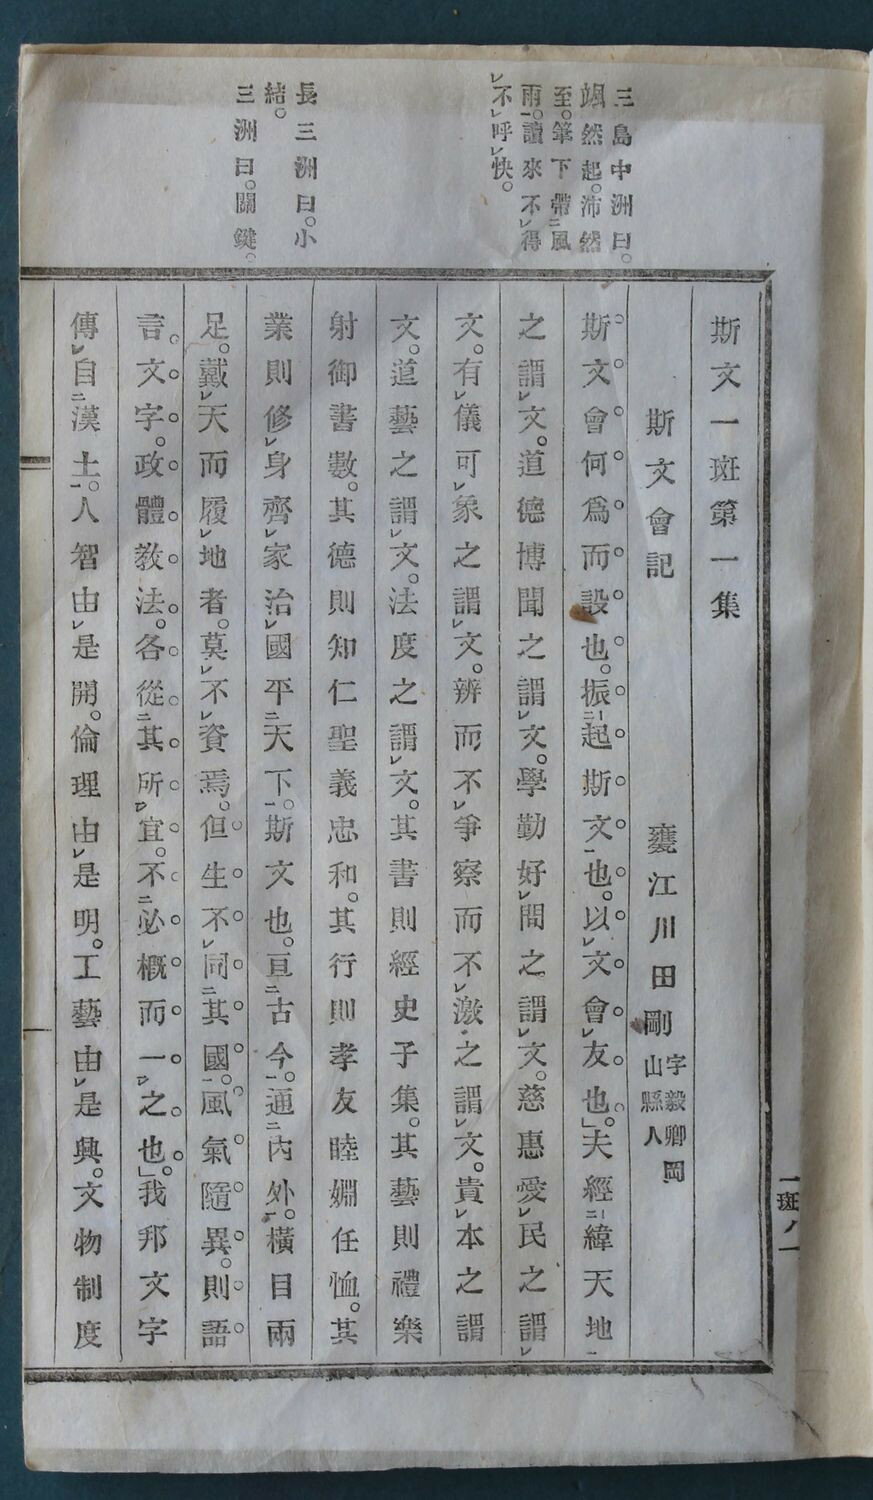 三島中洲曰。
颯然起。沛然
至。筆下帶二風
雨一。讀來不レ得
レ不レ呼レ快。
長三洲曰。小
結。
三洲曰。關鍵。
斯文一斑第一集
斯文會記
甕江川田剛 字毅卿岡
山縣人
斯文會何爲而設也。振二起斯文一也。以レ文會レ友也。」夫經二緯天地一
之謂レ文。道德博聞之謂レ文。學勤好レ問之謂レ文。慈惠愛レ民之謂レ
文。有レ儀可レ象之謂レ文。辨而不レ爭察而不レ激之謂レ文。貴レ本之謂
文。道藝之謂レ文。法度之謂レ文。其書則經史子集。其藝則禮樂
射御書數。其德則知仁聖義忠和。其行則孝友睦婣任恤。其
業則修レ身齊レ家治レ國平二天下一。斯文也。亘二古今一。通二內外一。橫目兩
足。戴レ天而履レ地者。莫レ不レ資焉。但生不レ同二其國一。風氣隨異。則語
言文字。政體敎法。各從二其所一レ宜。不二必概而一一レ之也。」我邦文字
傳レ自二漢土一。人智由レ是開。倫理由レ是明。工藝由レ是興。文物制度
一斑ノ一